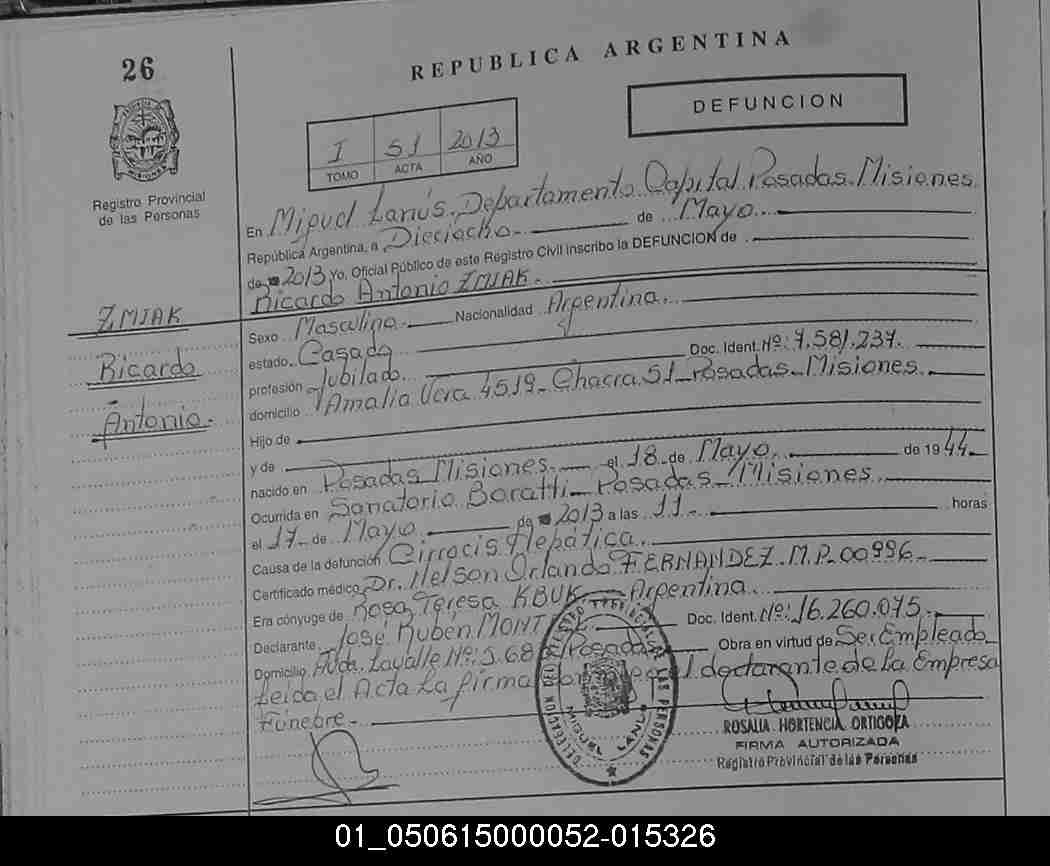 26
REPUBLICA ARGENTINA
DEFUNCION
I 51 2013
TOMO ACTA AÑO
Registro Provincial
de las Personas
En Miguel Lanús. Departamento Capital Posadas. Misiones
República Argentina, a Dieciocho. de Mayo.
de 2013 Yo. Oficial Público de este Registro Civil inscribo la DEFUNCION de
Ricardo Antonio ZMIAK.
ZMIAK
Ricardo
Antonio.
Sexo Masculino. Nacionalidad Argentina.
estado. Casado Doc. Ident. Nº: 7.581.237.
profesión Jubilado.
domicilio Amalia Vera 4519_ Chacra 51_ Posadas_ Misiones.
Hijo de
y de
nacido en Posadas Misiones. el 18 de Mayo. de 1944.
Ocurrida en Sanatorio Boratti_ Posadas_ Misiones.
el 17 de Mayo. de 2013 a las 11. horas
Causa de la defunción Cirrocis Hepática.
Certificado médico Dr. Nelson Orlando FERNANDEZ. M.P. 00996
Era cónyuge de Rosa Teresa KBUK Argentina.
Declarante. José Rubén Doc. Ident. Nº: 16.260.075.
Domicilio. Avda. Lavalle Nº: 5.68 Posadas Obra en virtud de Ser Empleado
Leida el Acta La firma el declarante de La Empresa
Fúnebre
DELEGACION DEL REGISTRO PROVINCIAL DE LAS PERSONAS
MIGUEL LANUS
ROSALIA HORTENCIA ORTIGOZA
FIRMA AUTORIZADA
Registro Provincial de las Personas
01_050615000052-015326